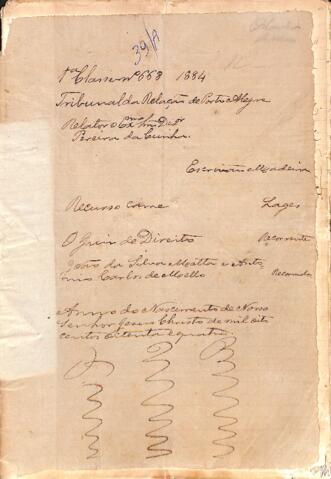 39/A
1ª Classe nº 668 1884
Tribunal da Relação de Porto Alegre
Relator o Exmo Snr Desor
Pereira da Cunha
Escrivão Madeira
Recurso crime Lages
O Juiz de Direito Recorrente
João da Silva Mattos e Anto-
nio Carlos de Mello Recorridos
Anno do Nascimento de Nosso
Senhor Jesus Christo de mil oito
centos oitenta e quatro